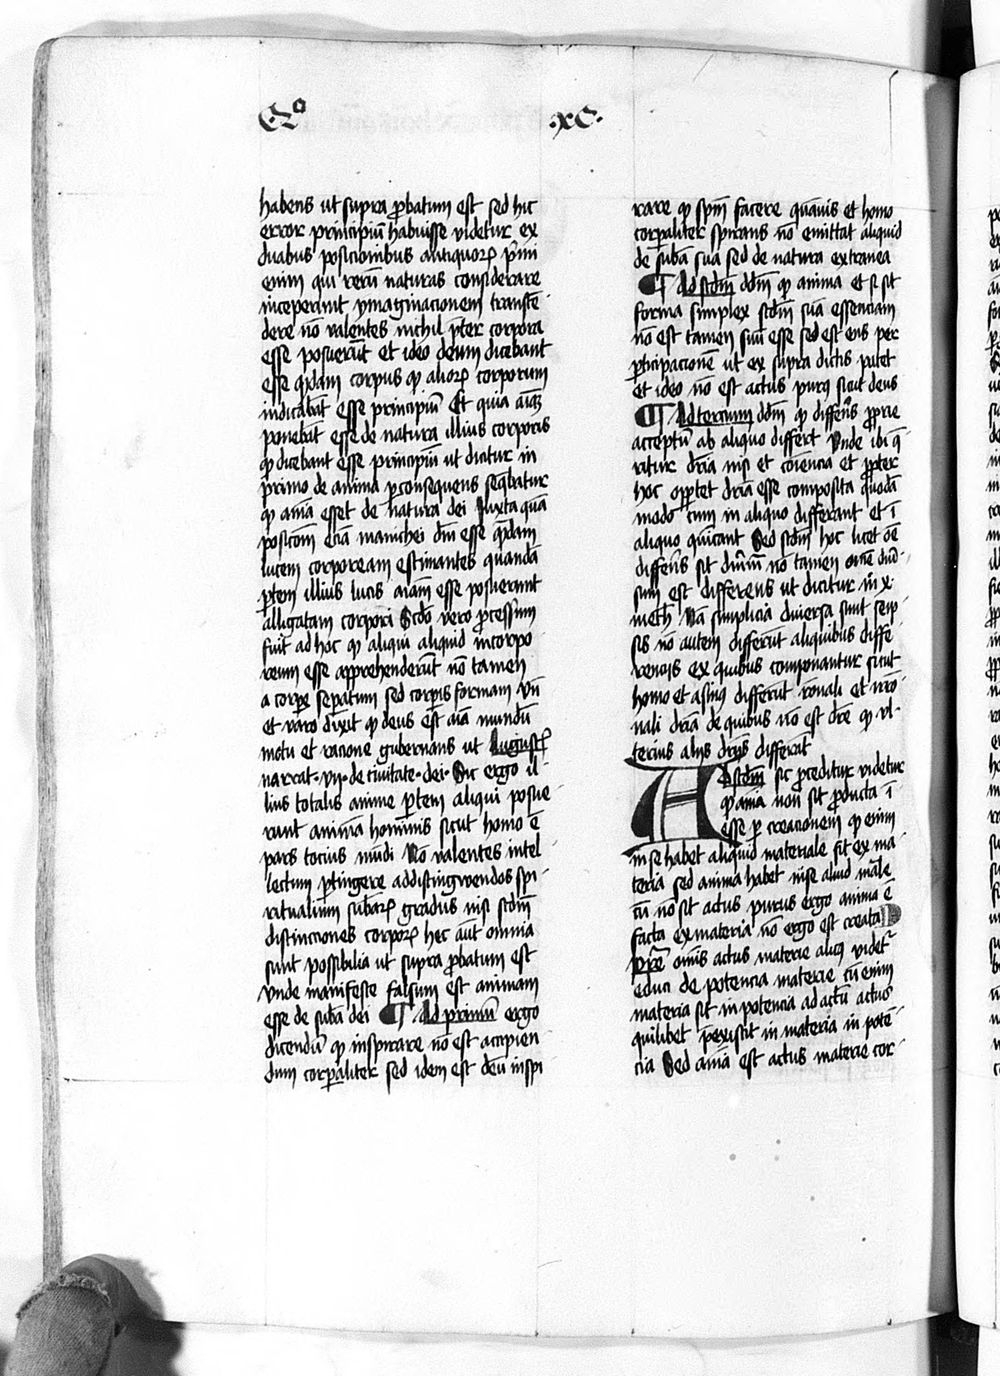 Qo xc.
habens ut supra ꝓbatum est sed hic
error principiū habuisse videtur ex
duabus posicionibus antiquoꝝ p̄mi
enim qui reꝝ naturas considerare
inceperunt ymaginacionem transcē
dere nō valentes nichil p̄ter corpora
esse posuerūt et ideo deum dicebant
esse qddam corpus qꝫ alioꝝ corporum
iudicabāt esse principiū Et quia aīaꝫ
ponebāt esse de natura illius corporis
qꝫ dicebant esse principiū ut dicitur in
primo de anima ꝑ consequens seqbatur
qꝫ aīa esset de natura dei Iuxta quā
positōm eciā manichei deū esse qddam
lucem corpoream estimantes quandā
ꝑtem illius lucis aīam esse posuerunt
alligatam corpori Scdo vero ꝓcessum
fuit ad hoc qꝫ aliqui aliquid incorpo
reum esse apprehenderūt nō tamen
a corpe seꝑatum sed corpis formam vn̄
et varo dixit qꝫ deus est aīa mundū
motu et racione gubernans ut Augustꝰ
narrat vii de civitate dei Sic ergo il
lius totalis anime ꝑtem aliqui posue
runt animā hominis sicut homo ē
pars tocius mūdi Nō valentes intel
lectum ꝑtingere ad distingwendos spi
ritualium subāꝝ gradus nisi scdm
distinctiones corpoꝝ hec aūt omnia
sunt possibilia ut supra ꝓbatum est
vnde manifeste falsum est animam
esse de suba dei ¶ Ad primū ergo
dicendū qꝫ inspirare nō est accipien
dum corꝑaliter sed idem est deū inspi
rare qꝫ spm̄ facere quāuis et homo
corꝑaliter spirans nō emittat aliquid
de suba sua sed de natura extranea
¶ Ad scdm dd̄m qꝫ anima et si sit
forma simplex scdm suā essenciam
nō est tamen suū esse sed est ens per
ꝑticipacionē ut ex supra dictis patet
et ideo nō est actus purꝰ sicut deus
¶ Ad tercium dd̄m qꝫ differēs ꝓprie
acceptū ab aliquo differt vnde ibi q̄
ritur dr̄ia nisi et cōiencia et ꝓpter
hoc oportet dr̄ia esse composita quodā
modo cum in aliquo differant et ī
aliquo queniant Sed scdm hoc licet oē
differēs sit diūsum nō tamen omē diū
sum est differens ut dicitur in x
meth Nā simplicia diuersa sunt seip
sis nō autem differūt aliquibus diffe
rencijs ex quibus componantur sicut
homo et asinꝰ differūt rōnali et irrō
nali dr̄ia de quibus nō est dr̄e qꝫ vl
terius alijs dr̄ijs differāt
Ad scdm sic ꝓceditur videtur
qꝫ aīa non sit ꝓducta ī
esse ꝑ creacionem qꝫ enim
in se habet aliquid materiale fit ex ma
teria sed anima habet in se aliud māle
cū nō sit actus purus ergo anima ē
facta ex materia nō ergo est creata
Pre omīs actus materie alicꝰ videtr
educi de potencia materie cū enim
materia sit in potencia ad actū actus
quilibet p̄existit in materia in potē
cia Sed aīa est actus materie cor